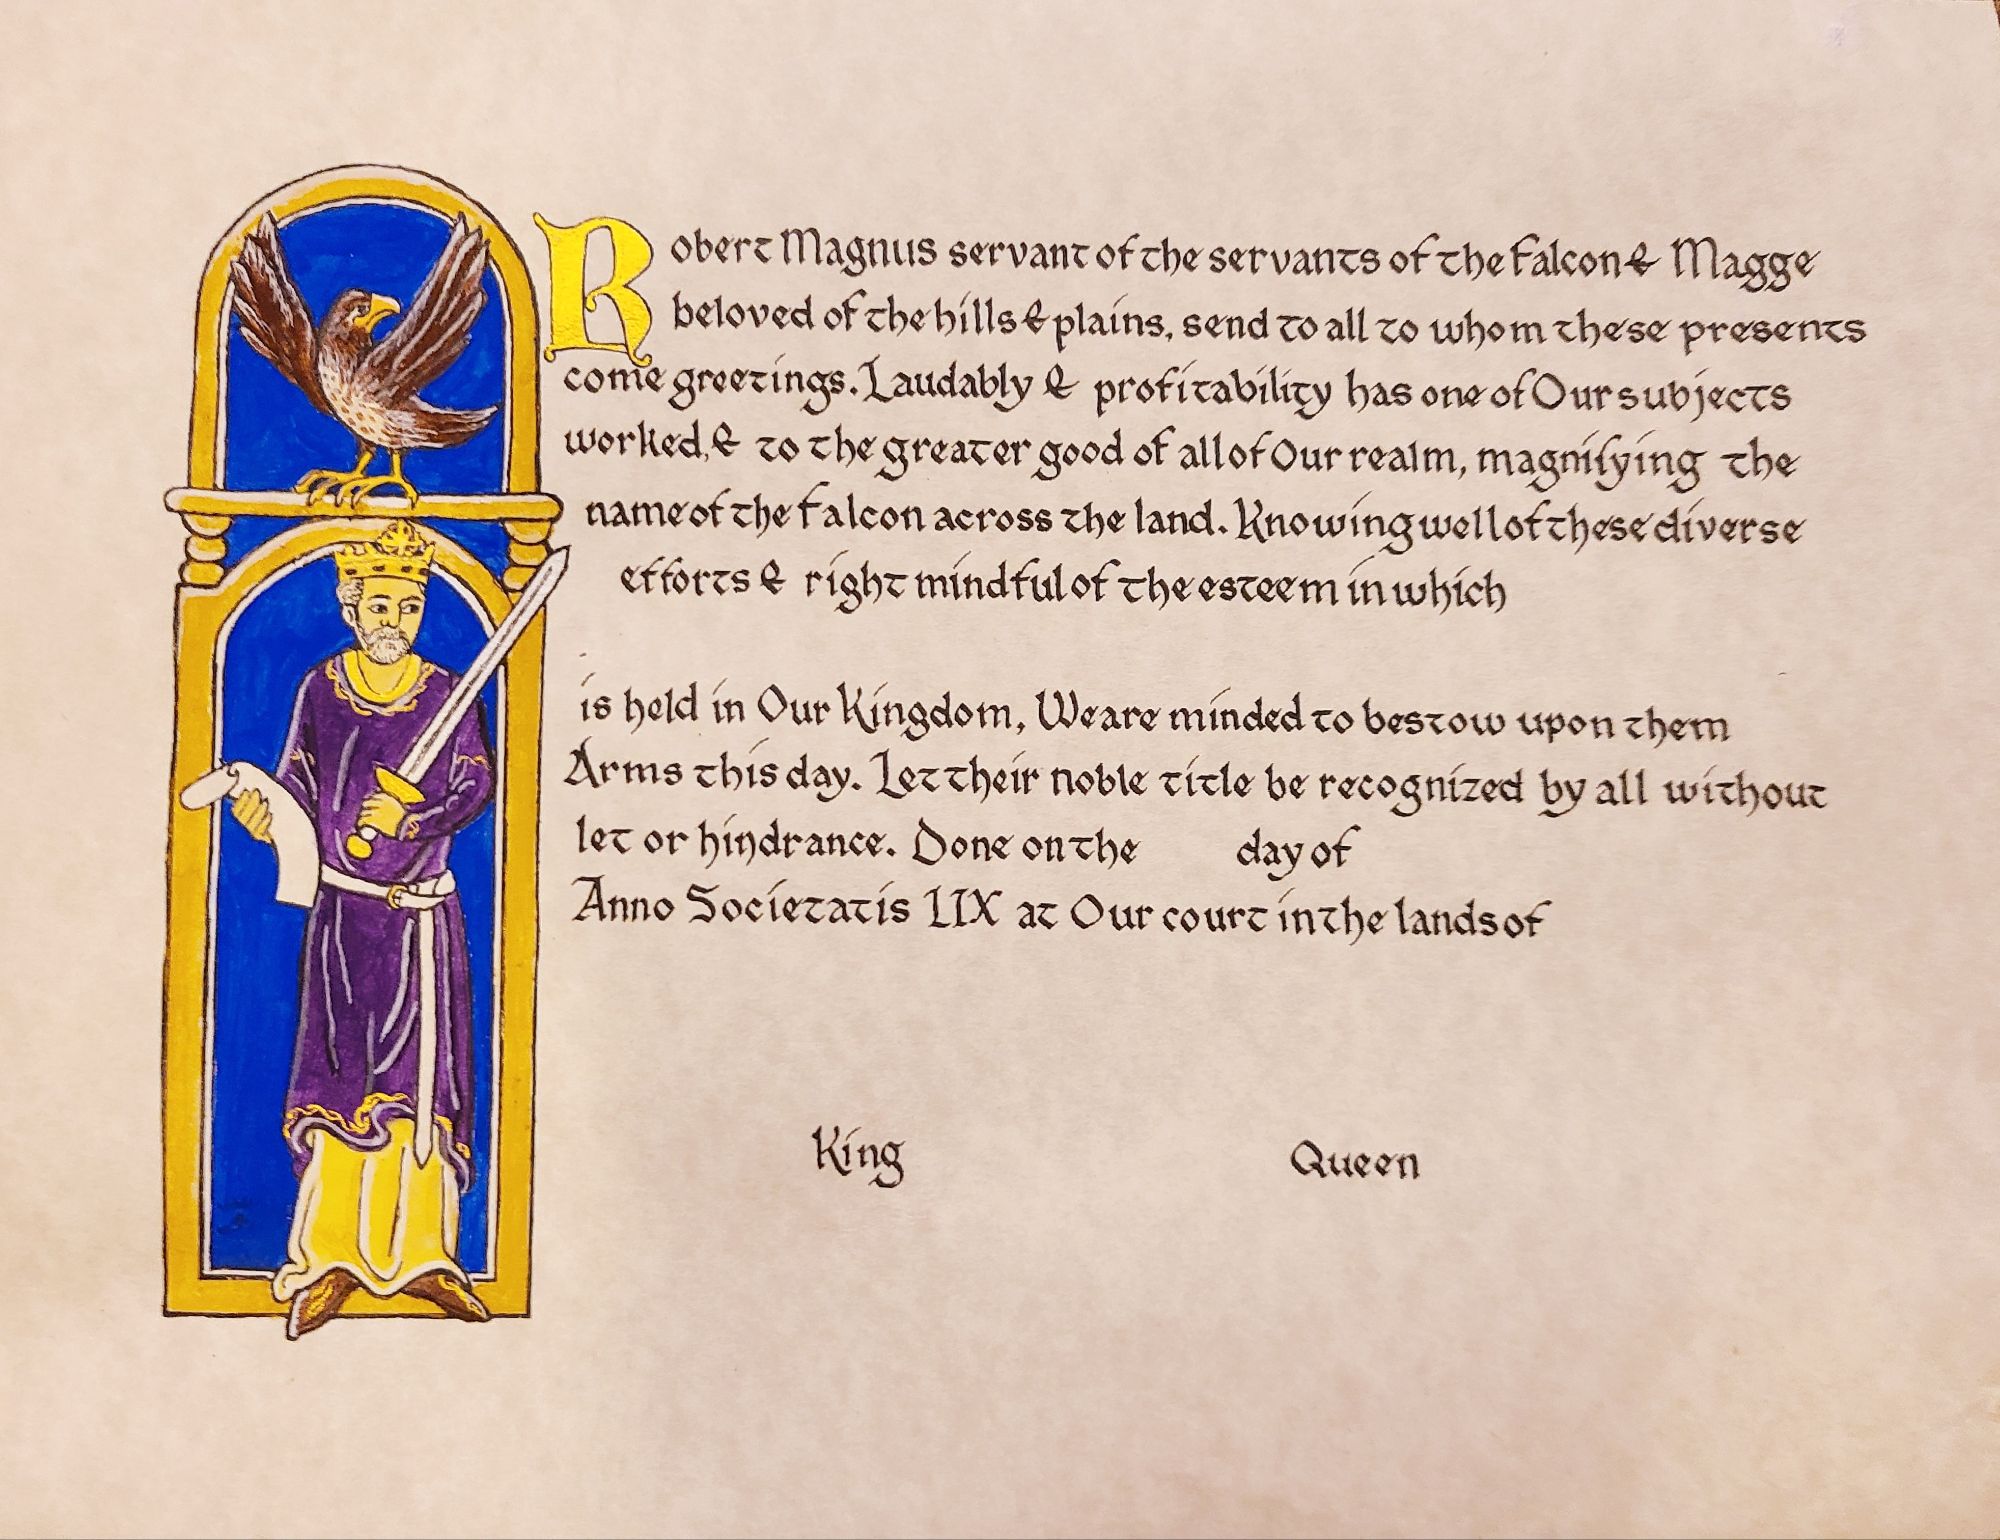 Robert Magnus servant of the servants of the Falcon & Magge
beloved of the hills & plains, send to all to whom these presents
come greetings. Laudably & profitability has one of Our subjects
worked, & to the greater good of all of Our realm, magnifying the
name of the Falcon across the land. Knowing well of these diverse
efforts & right mindful of the esteem in which
is held in Our Kingdom, We are minded to bestow upon them
Arms this day. Let their noble title be recognized by all without
let or hindrance. Done on the day of
Anno Societatis LIX at Our court in the lands of
King Queen